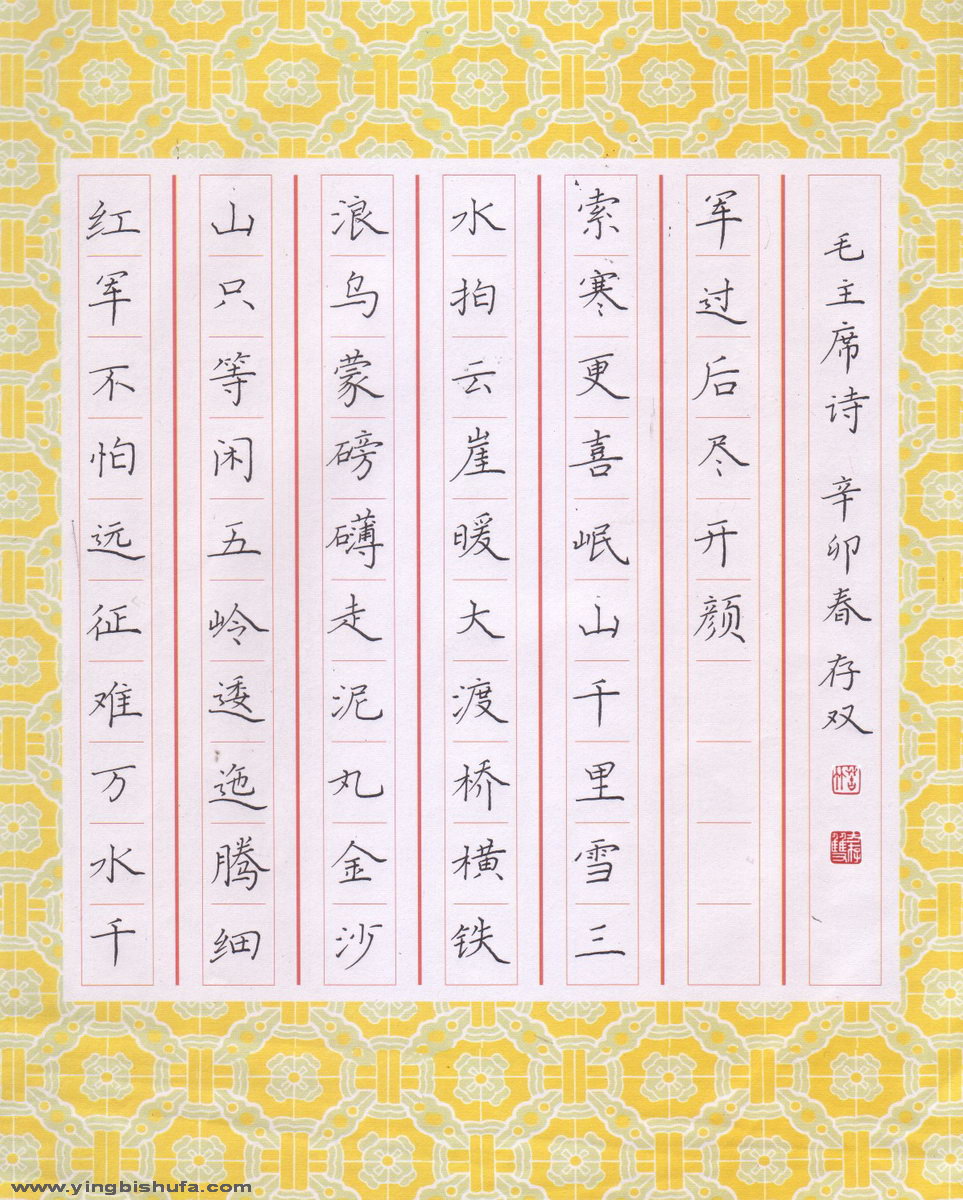 红军不怕远征难万水千
山只等闲五岭逶迤腾细
浪乌蒙磅礴走泥丸金沙
水拍云崖暖大渡桥横铁
索寒更喜岷山千里雪三
军过后尽开颜
毛主席诗 辛卯春 存双
www.yingbishufa.com